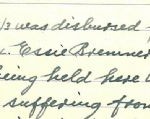 1/3 was disbursed
Essie Bremner
being held here
suffering from